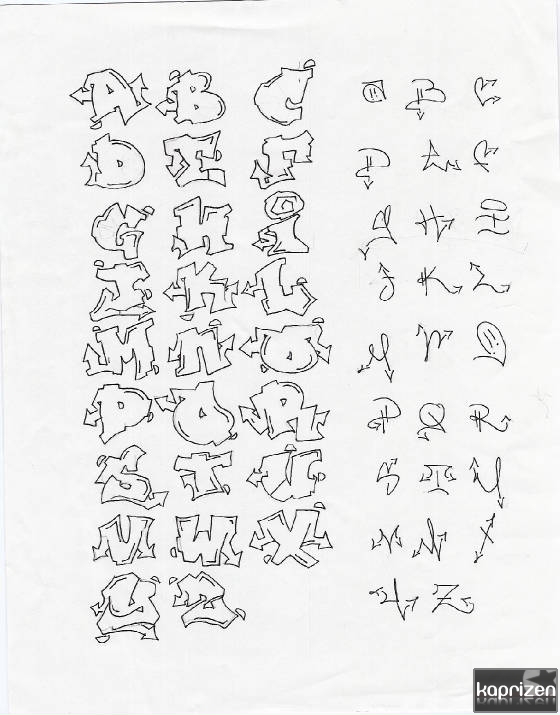 A B C A B C
D E F D E F
G H I G H I
J K L J K L
M N O M N O
P Q R P Q R
S T U S T U
V W X V W X
Y Z Y Z
kaprizen